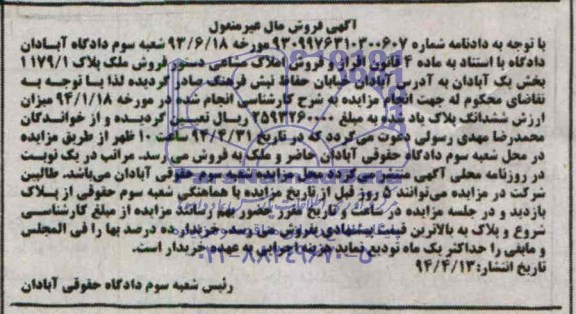 آگهی فروش مال غیرمنقول
با توجه به دادنامه شماره ۹۳۰۹۹۷۶۳۱۰۳۰۰۶۰۷ مورخه ۹۳/۶/۱۸ شعبه سوم دادگاه آبادان
دادگاه با استناد به ماده ۴ قانون افراز و فروش املاک مشاعی دستور فروش ملک پلاک ۱۱۷۹/۱
بخش یک آبادان به آدرس آبادان خیابان حفاظ نبش فرهنگ صادر گردیده لذا با توجه به
تقاضای محکوم له جهت انجام مزایده به شرح کارشناسی انجام شده در مورخه ۹۴/۱/۱۸ میزان
ارزش ششدانگ پلاک یاد شده به مبلغ ۲۵۹۳۲۶۰۰۰۰ ریال تعیین گردیده و از خواندگان
محمدرضا مهدی رسولی دعوت می‌گردد که در تاریخ ۹۴/۴/۳۱ ساعت ۱۰ ظهر از طریق مزایده
در محل شعبه سوم دادگاه حقوقی آبادان حاضر و ملک به فروش می رسد. مراتب در یک نوبت
در روزنامه محلی آگهی منتشر می‌گردد محل مزایده شعبه سوم حقوقی آبادان می‌باشد. طالبین
شرکت در مزایده می‌توانند ۵ روز قبل از تاریخ مزایده با هماهنگی شعبه سوم حقوقی از پلاک
بازدید و در جلسه مزایده در ساعت و تاریخ مقرر حضور بهم رسانند مزایده از مبلغ کارشناسی
شروع و پلاک به بالاترین قیمت پیشنهادی بفروش می‌رسد. خریدار ده درصد بها را فی المجلس
و مابقی را حداکثر یک ماه تودیع نماید هزینه اجرایی به عهده خریدار است.
تاریخ انتشار: ۹۴/۴/۱۳
رئیس شعبه سوم دادگاه حقوقی آبادان
۰۲۱-۸۸۳۴۹۶۷۰